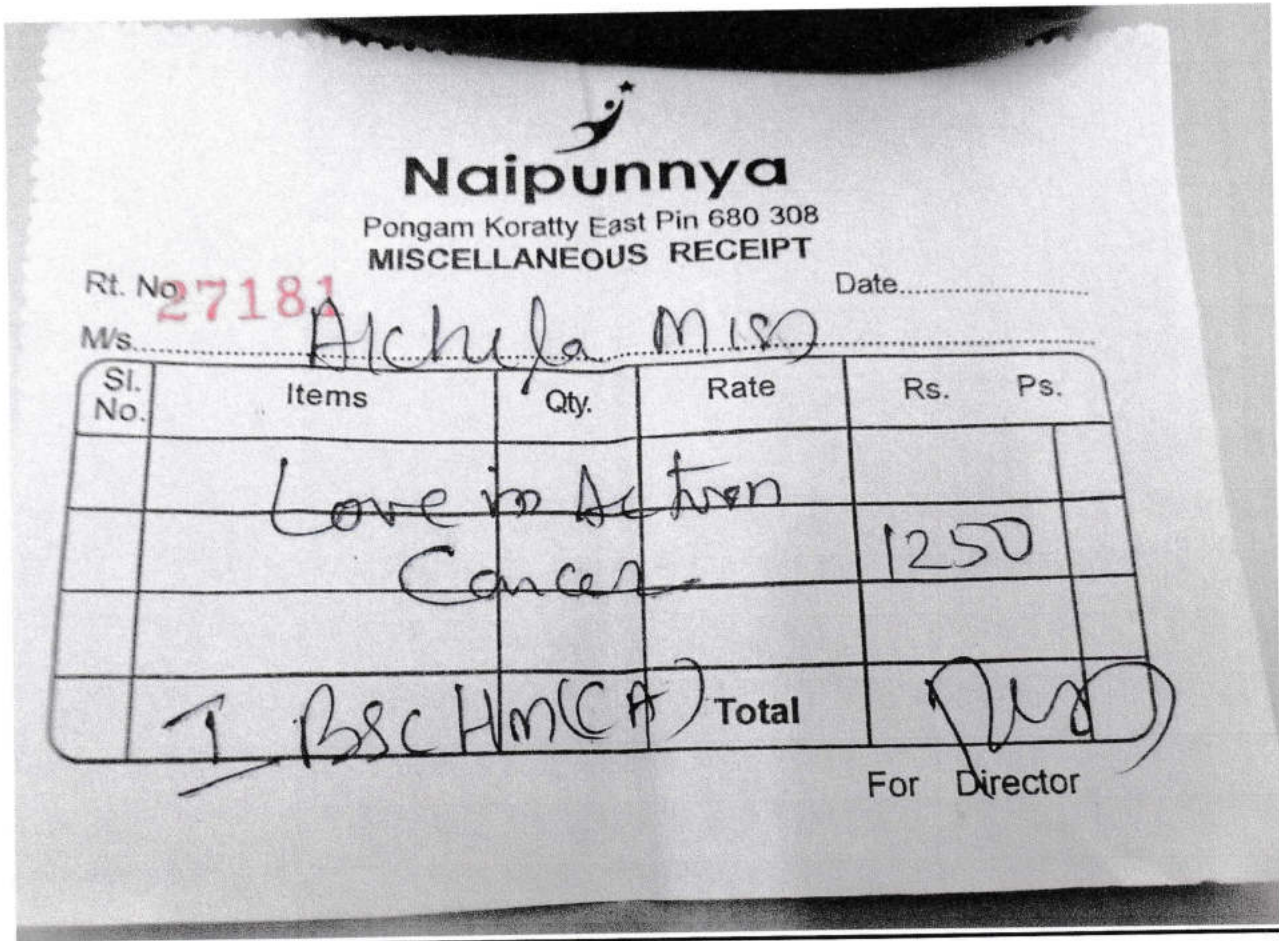 Naipunnya
Pongam Koratty East Pin 680 308
MISCELLANEOUS RECEIPT
Rt. No 27181 Date
M/s. Miss
Sl. No. Items Qty. Rate Rs. Ps.
Love in Action
Cancer 1250
I BSC HM(CA) Total
For Director